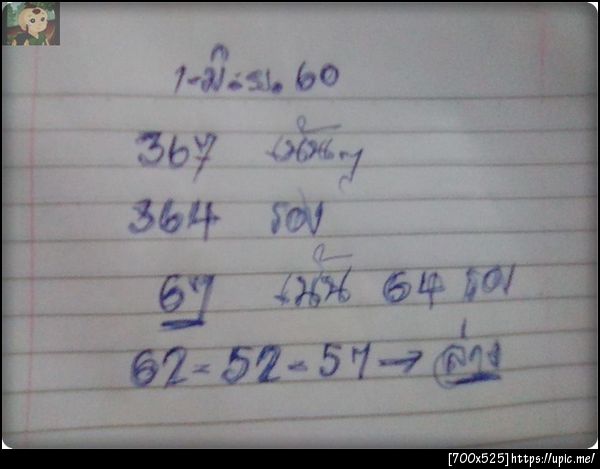 1-มิ.ย. 60
367 เน้นๆ
364 รอง
67 เน้น 64 รอง
62-52-57→ ล่าง
[700x525]https://upic.me/